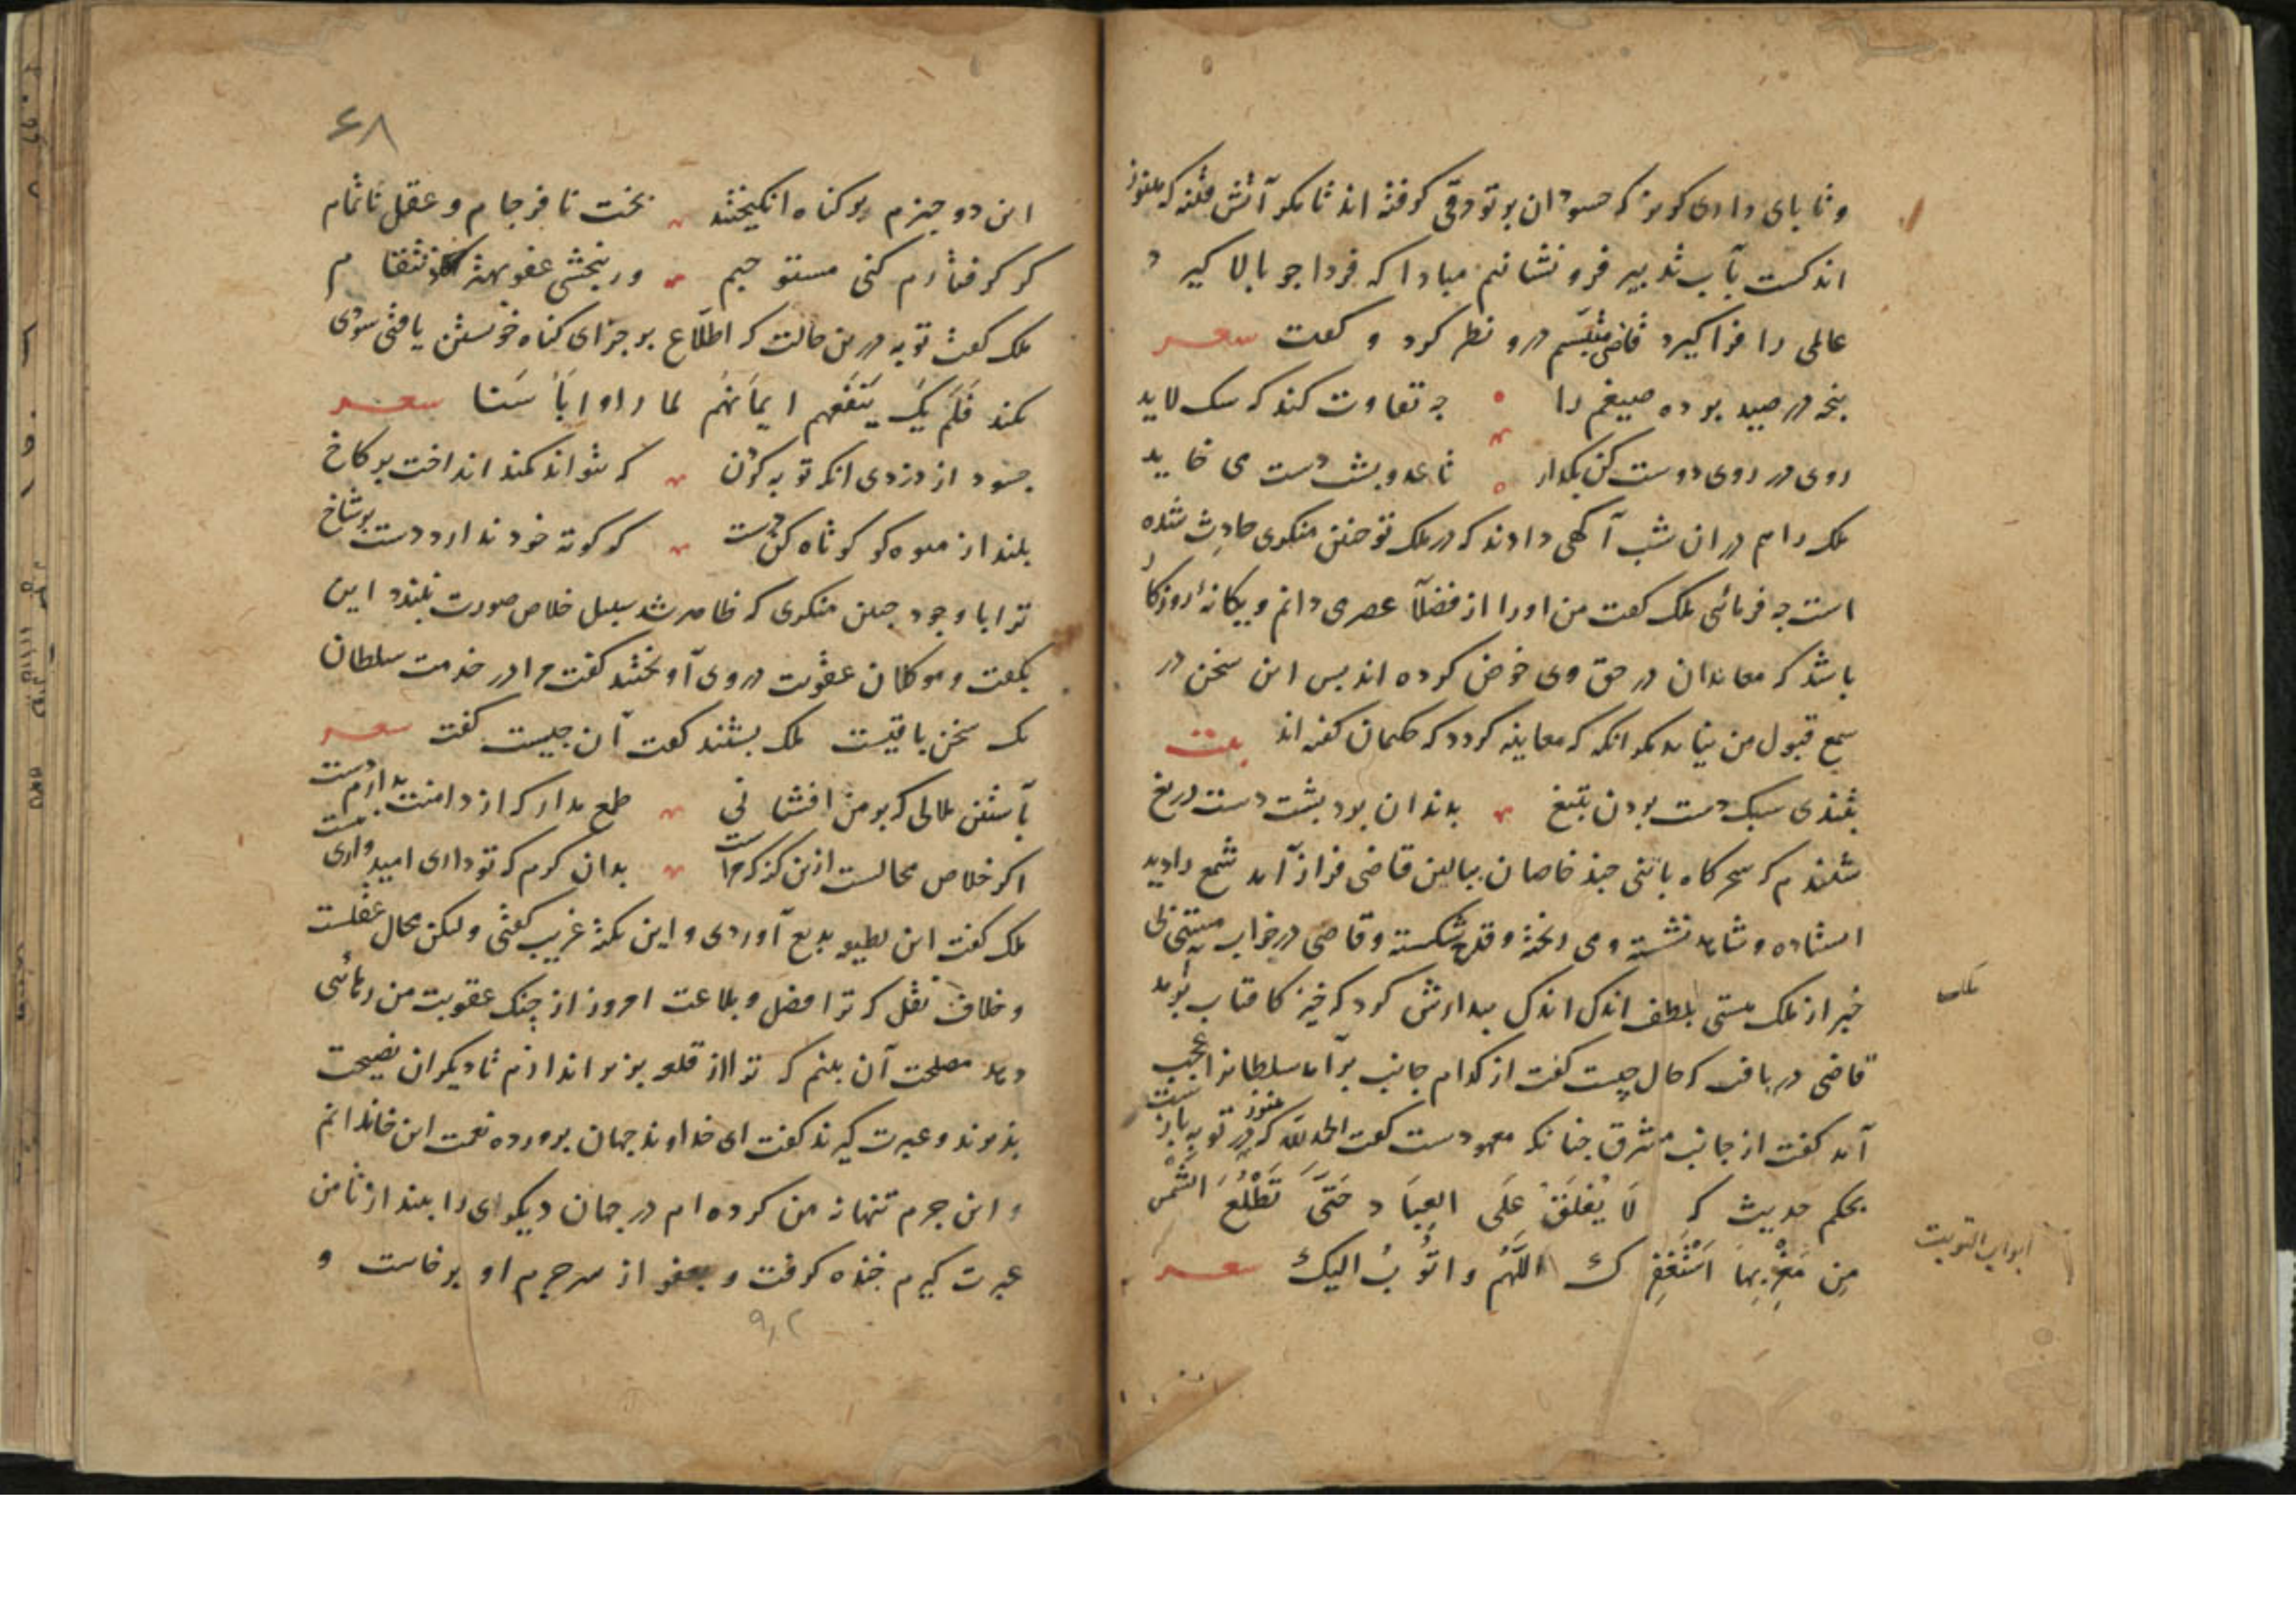 وتا پای داری کریز که حسودان بر تو دقی گرفته اند تا مکر آتش فتنه که هنوز
اندکست بآب تدبیر فرو نشانیم مبادا که فردا جو بالا کیرد
عالمی را فرا کیرد قاضی متبسم درو نظر کرد و گفت شعر
پنجه در صید برده ضیغم را جه تفاوت کند که سک لاید
روی در روی دوست کن بکذار تا عدو پشت دست می خاید
ملک را هم در ان شب آگهی دادند که در ملک تو جنین منکری حادث شده
است جه فرمائی ملک گفت من اورا از فضلآ عصر می دانم و یکانۀ روزکا
باشد که معاندان در حق وی خوض کرده اند پس این سخن در
سمع قبول من نیاید مکر انکه که معاینه کردد که حکمان کفته اند بیت
بتندی سبک دست بردن بتیغ بدندان برد پشت دست دریغ
شنیدم که سحرکاه با تنی جند خاصان ببالین قاضی فراز آمد شمع را دید
استاده و شاهد نشسته و می ریخته و قدح شکسته و قاضی در خواب مستی بی
خبر از ملک هستی بلطف اندک اندک بیدارش کرد که خیز کافتاب برآمد
ملک
قاضی دریافت که حال چیست کفت از کدام جانب برآمد سلطانرا عجب
آمد کفت از جانب مشرق جنانکه معهودست کفت الحمدلله که هنوز در توبه بازست
بحکم حدیث که لَا یُغلَقُ عَلَی العِبَاد حَتَّی تَطْلُعَ الشَّمْسُ
ابواب التوبت
مِن مَغْرِبِهَا اَسْتَغفِرُكَ اللَّهُمَّ واتُوبُ الیکَ شعر
۶۸
این دو جیزم بر کناه انکیختند بخت نافرجام و عقل ناتمام
کر کرفتارم کنی مستوجبم ور ببخشی عفو بهتر کانتقام
ملک کفت توبه درین حالت که اطلاع بر جزای کناه خویشتن یافتی سودی
نکند فَلَم یَكُ یَنفَعُهم اِیمَانُهُم لما راوا بَأسَنا شعر
جه سود از دزدی انکه توبه کردن که نتواند کمند انداخت بر کاخ
بلند از میوه کو کوتاه کن دست که کوته خود ندارد دست بر شاخ
ترا با وجود جنین منکری که ظاهر شد سبیل خلاص صورت نبندد این
بگفت و موکلان عقوبت در وی آویختند کفت مرا در خدمت سلطان
یک سخن باقیست ملک بشنید کفت آن جیست کفت شعر
بآستین ملالی که بر من افشانی طمع مدار که از دامنت بدارم دست
اکر خلاص محالست ازین کنه که مراست بدان کرم که تو داری امیدواری هست
ملک کفت این لطیفه بدیع آوردی و این نکته غریب کفتی ولیکن محال عقلست
و خلاف نقل که ترا فضل و بلاغت امروز از چنک عقوبت من رهائی
دهد مصلحت آن بینم که ترا از قلعه بزیر اندازم تا دیکران نصیحت
پذیرند و عبرت کیرند کفت ای خداوند جهان پرورده نعمت این خاندانم
و این جرم تنها نه من کرده ام در جهان دیکری را بینداز تا من
عبرت کیرم خنده کرفت و بعفو از سر جرم او برخاست و
۹۲